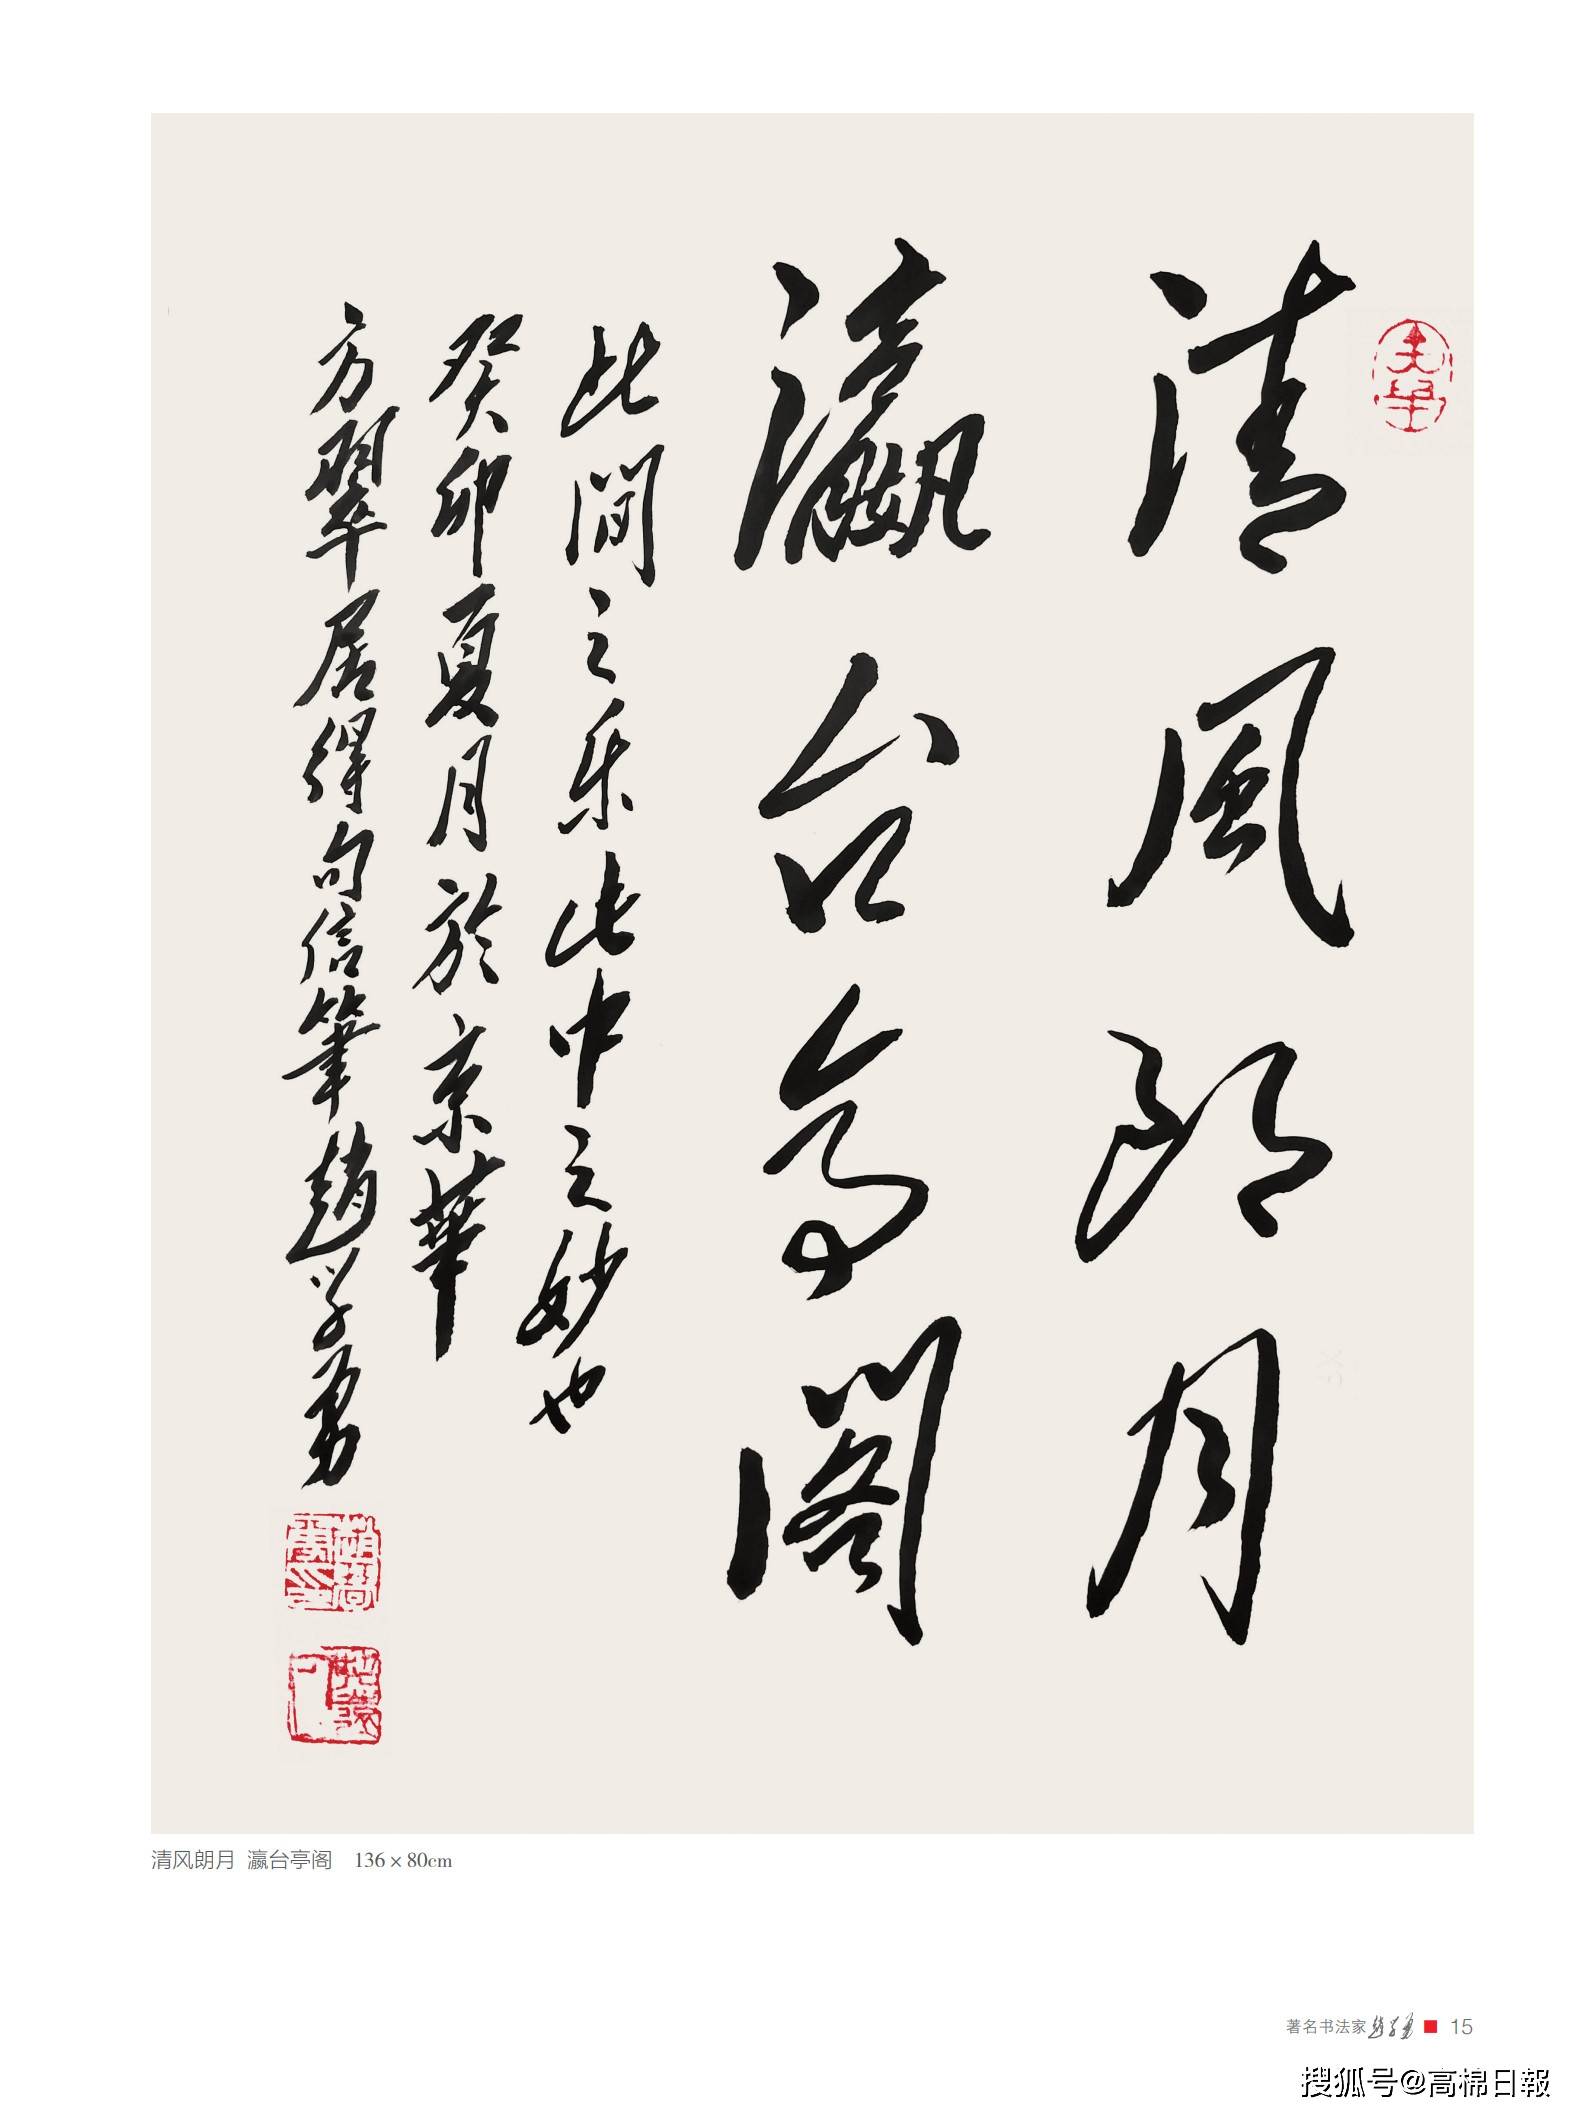 清風朗月
瀛台亭阁
此间之乐此中之妙也
癸卯夏月於京華
方翠居得句信筆趙学勇
清风朗月 瀛台亭阁 136×80cm
著名书法家趙学勇 15
搜狐号@高棉日報